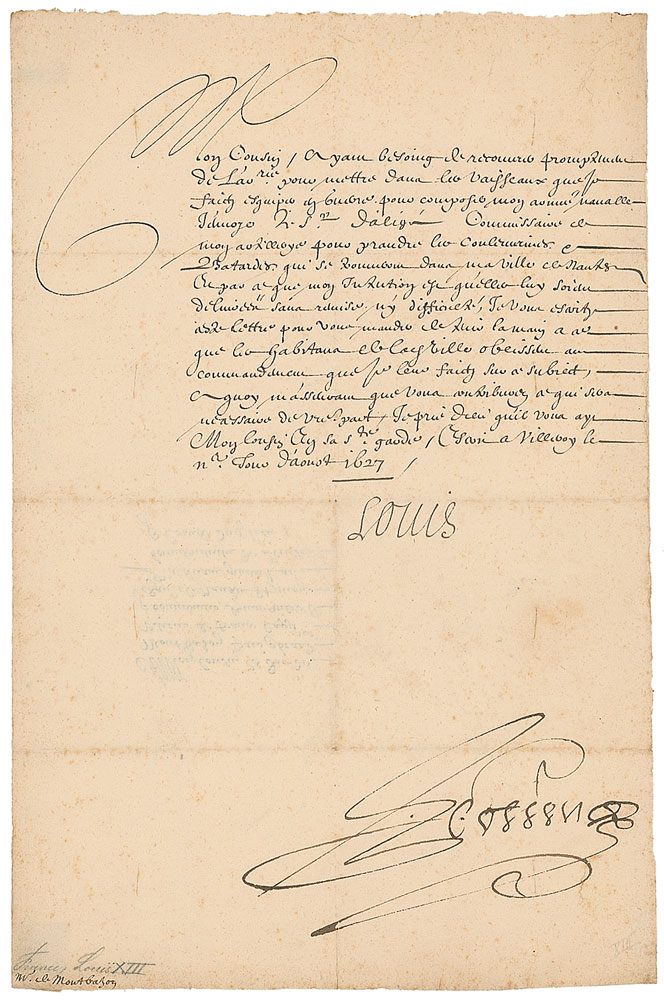 Mon Cousin, Ayant besoing de recouvrer promptement
de L'arrie pour mettre dans les vaisseaux que Je
faictz esquiper en guerre pour composer mon armée navalle
J'envoye le Sr Daligé Commissaire de
mon artillerye pour prendre les Coulevrines et
Batardes qui se trouvent dans ma ville de Nantes
Et par ce que mon Intention est quelles luy soient
délivrées sans remise ny difficulté, Je vous escritz
ceste lettre pour vous mander de tenir la main a ce
que les habitans de lad. ville obeissent au
commandement que Je leur faictz sur ce subject,
A quoy m'asseurant que vous contribuerez ce qui sera
necessaire de vre part, Je prie Dieu qu'il vous ayt
Mon Cousin En sa ste garde, Escrit a Villeroy le
Jour d'aoust 1627
Louis
France, Louis XIII
Mr. de Montbazon